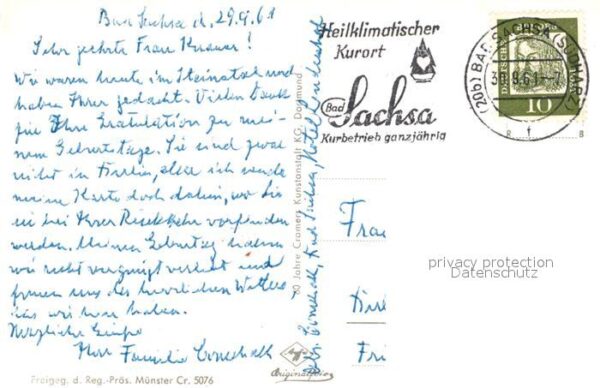 Bad Sachsa d. 29.9.61
Sehr geehrte Frau
Wir waren heute im Steinatal und
haben Ihrer gedacht. Vielen Dank
für Ihre Gratulation zu mei-
nem Geburtstage. Sie sind zwar
nicht in Berlin, aber ich sende
meine Karte doch dahin, wo Sie
sie bei Ihrer Rückkehr vorfinden
werden. Meinen Geburtstag haben
wir recht vergnügt verlebt und
freuen uns des herrlichen Wetters
das wir haben.
Herzliche Grüße
Ihre Familie
Freigeg. d. Reg.-Präs. Münster Cr. 5076
60 Jahre Cramers Kunstanstalt KG. Dortmund
Agfa
Originalfoto
Abs. Bad Sachsa, Hotel
Heilklimatischer
Kurort
Bad
Sachsa
Kurbetrieb ganzjährig
(20b) BAD SACHSA (SÜDHARZ)
30.9.61-7
f
DEUTSCHE
10
8 8
Frau
privacy protection
Datenschutz